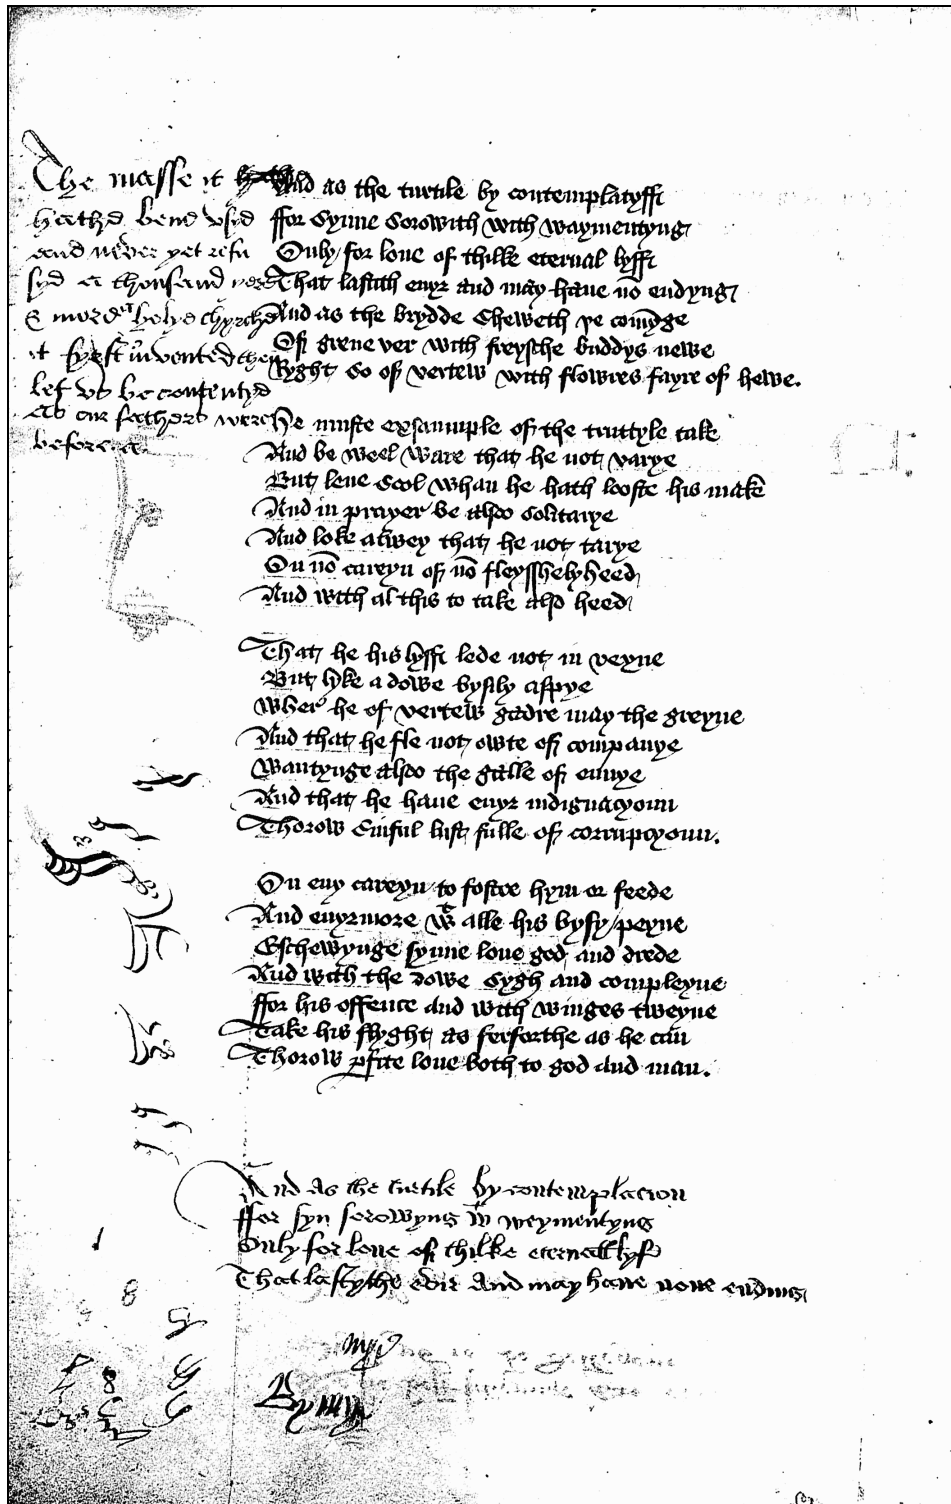 The masse it
hathe bene vsyd
and never yet refu
syd a thousand yere
& more holye chyrche
it fyrst invented then
let vs be contentyd
as our fathers were
before
And as the turtile by contemplatyff
ffor Synne Sorowith with waymentyng
Only for loue of thilke eternal lyff
That lastith euyr and may haue no endyng
And as the brydde Sheweth þe comynge
Of grene ver with freysche buddys newe
Ryght So of vertew with flowres fayre of hewe.
He muste exsaumple of the truttyle take
And be weel ware that he not varye
But leue Sool whan he hath looste his make
And in prayer be also Solitarye
And loke alwey that he not tarye
On no careyn of no fleysshelyheed
And with al this to take also heed
That he his lyff lede not in veyne
But lyke a dowe bysily aspye
Wher he of vertew gadre may the greyne
And that he fle not owte of companye
Wantynge also the galle of enuye
And that he haue euyr indignacyoun
Thorow Sinful lust fulle of corrupcyoun.
On eny careyn to fostre hym or feede
And euyrmore wt alle his bysy peyne
Eschewynge synne loue god and drede
And with the dowe Sygh and compleyne
ffor his offence and with winges tweyne
Take his flyght as ferforthe as he can
Thorow pfite loue both to god and man.
And as the turtile by contemplacion
ffor syn sorowyng wt weymentyng
Only for loue of thilke eternall lyf
That lastythe evir And may haue none ending